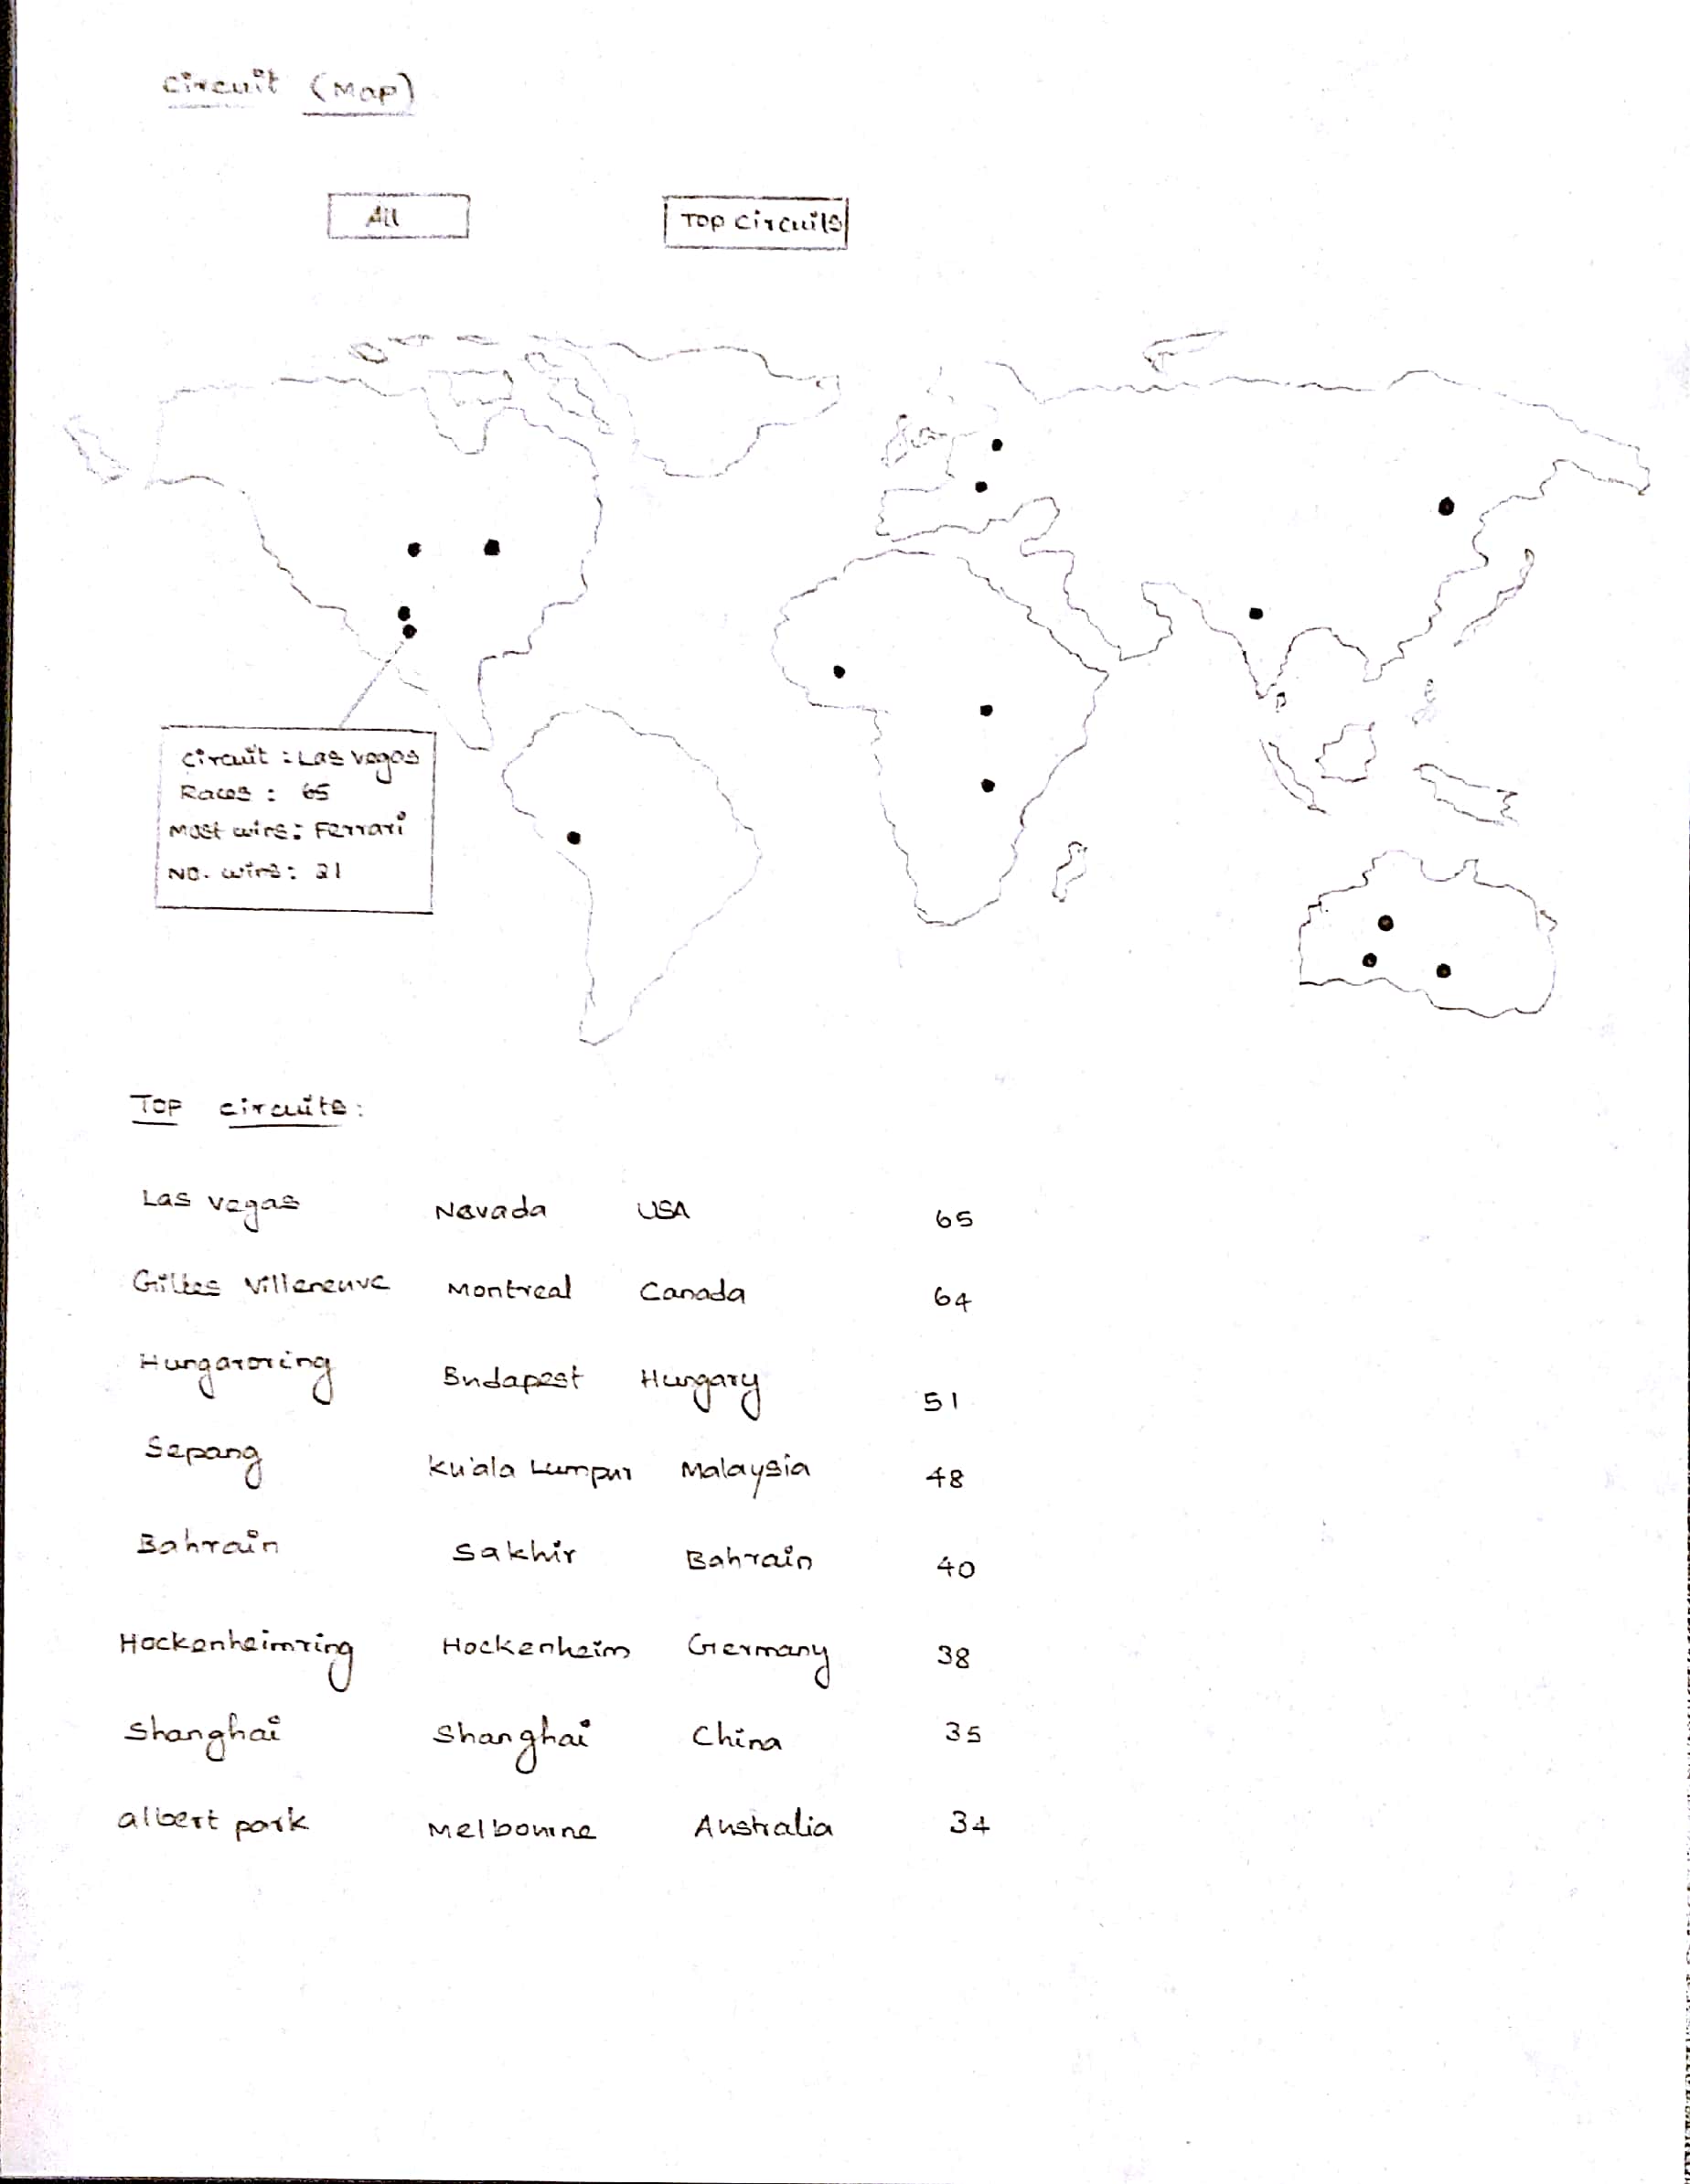 Circuit (Map)
All
Top Circuits
Circuit : Las Vegas
Races : 65
Most wins : Ferrari
No. wins : 21
Top circuits :
Las Vegas Nevada USA 65
Gilles Villeneuve Montreal Canada 64
Hungaroring Budapest Hungary 51
Sepang Kuala Lumpur Malaysia 48
Bahrain Sakhir Bahrain 40
Hockenheimring Hockenheim Germany 38
Shanghai Shanghai China 35
albert park Melbourne Australia 34